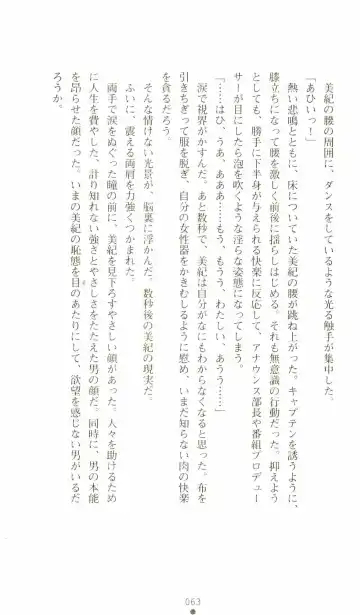 美紀の腰の周囲に、ダンスをしているような光る触手が集中した。
「あひいっ！」
熱い悲鳴とともに、床についていた美紀の腰が跳ね上がった。キャプテンを誘うように、
膝立ちになって腰を激しく前後に揺らしはじめる。それも無意識の行動だった。抑えよう
としても、勝手に下半身が与えられる快楽に反応して、アナウンス部長や番組プロデュー
サーが目にしたら泡を吹くような淫らな姿態になってしまう。
「……はひ、うあ、あああ……もう、もうう、わたしい、あうう……」
涙で視界がかすんだ。あと数秒で、美紀は自分がなにもわからなくなると思った。布を
引きちぎって服を脱ぎ、自分の女性器をかきむしるように慰め、いまだ知らない肉の快楽
を貪るだろう。
そんな情けない光景が、脳裏に浮かんだ。数秒後の美紀の現実だ。
ふいに、震える両肩を力強くつかまれた。
両手で涙をぬぐった瞳の前に、美紀を見下ろすやさしい顔があった。人々を助けるため
に人生を費やした、計り知れない強さとやさしさをたたえた男の顔だ。同時に、男の本能
を昂らせた顔だった。いまの美紀の恥態を目のあたりにして、欲望を感じない男がいるだ
ろうか。
063